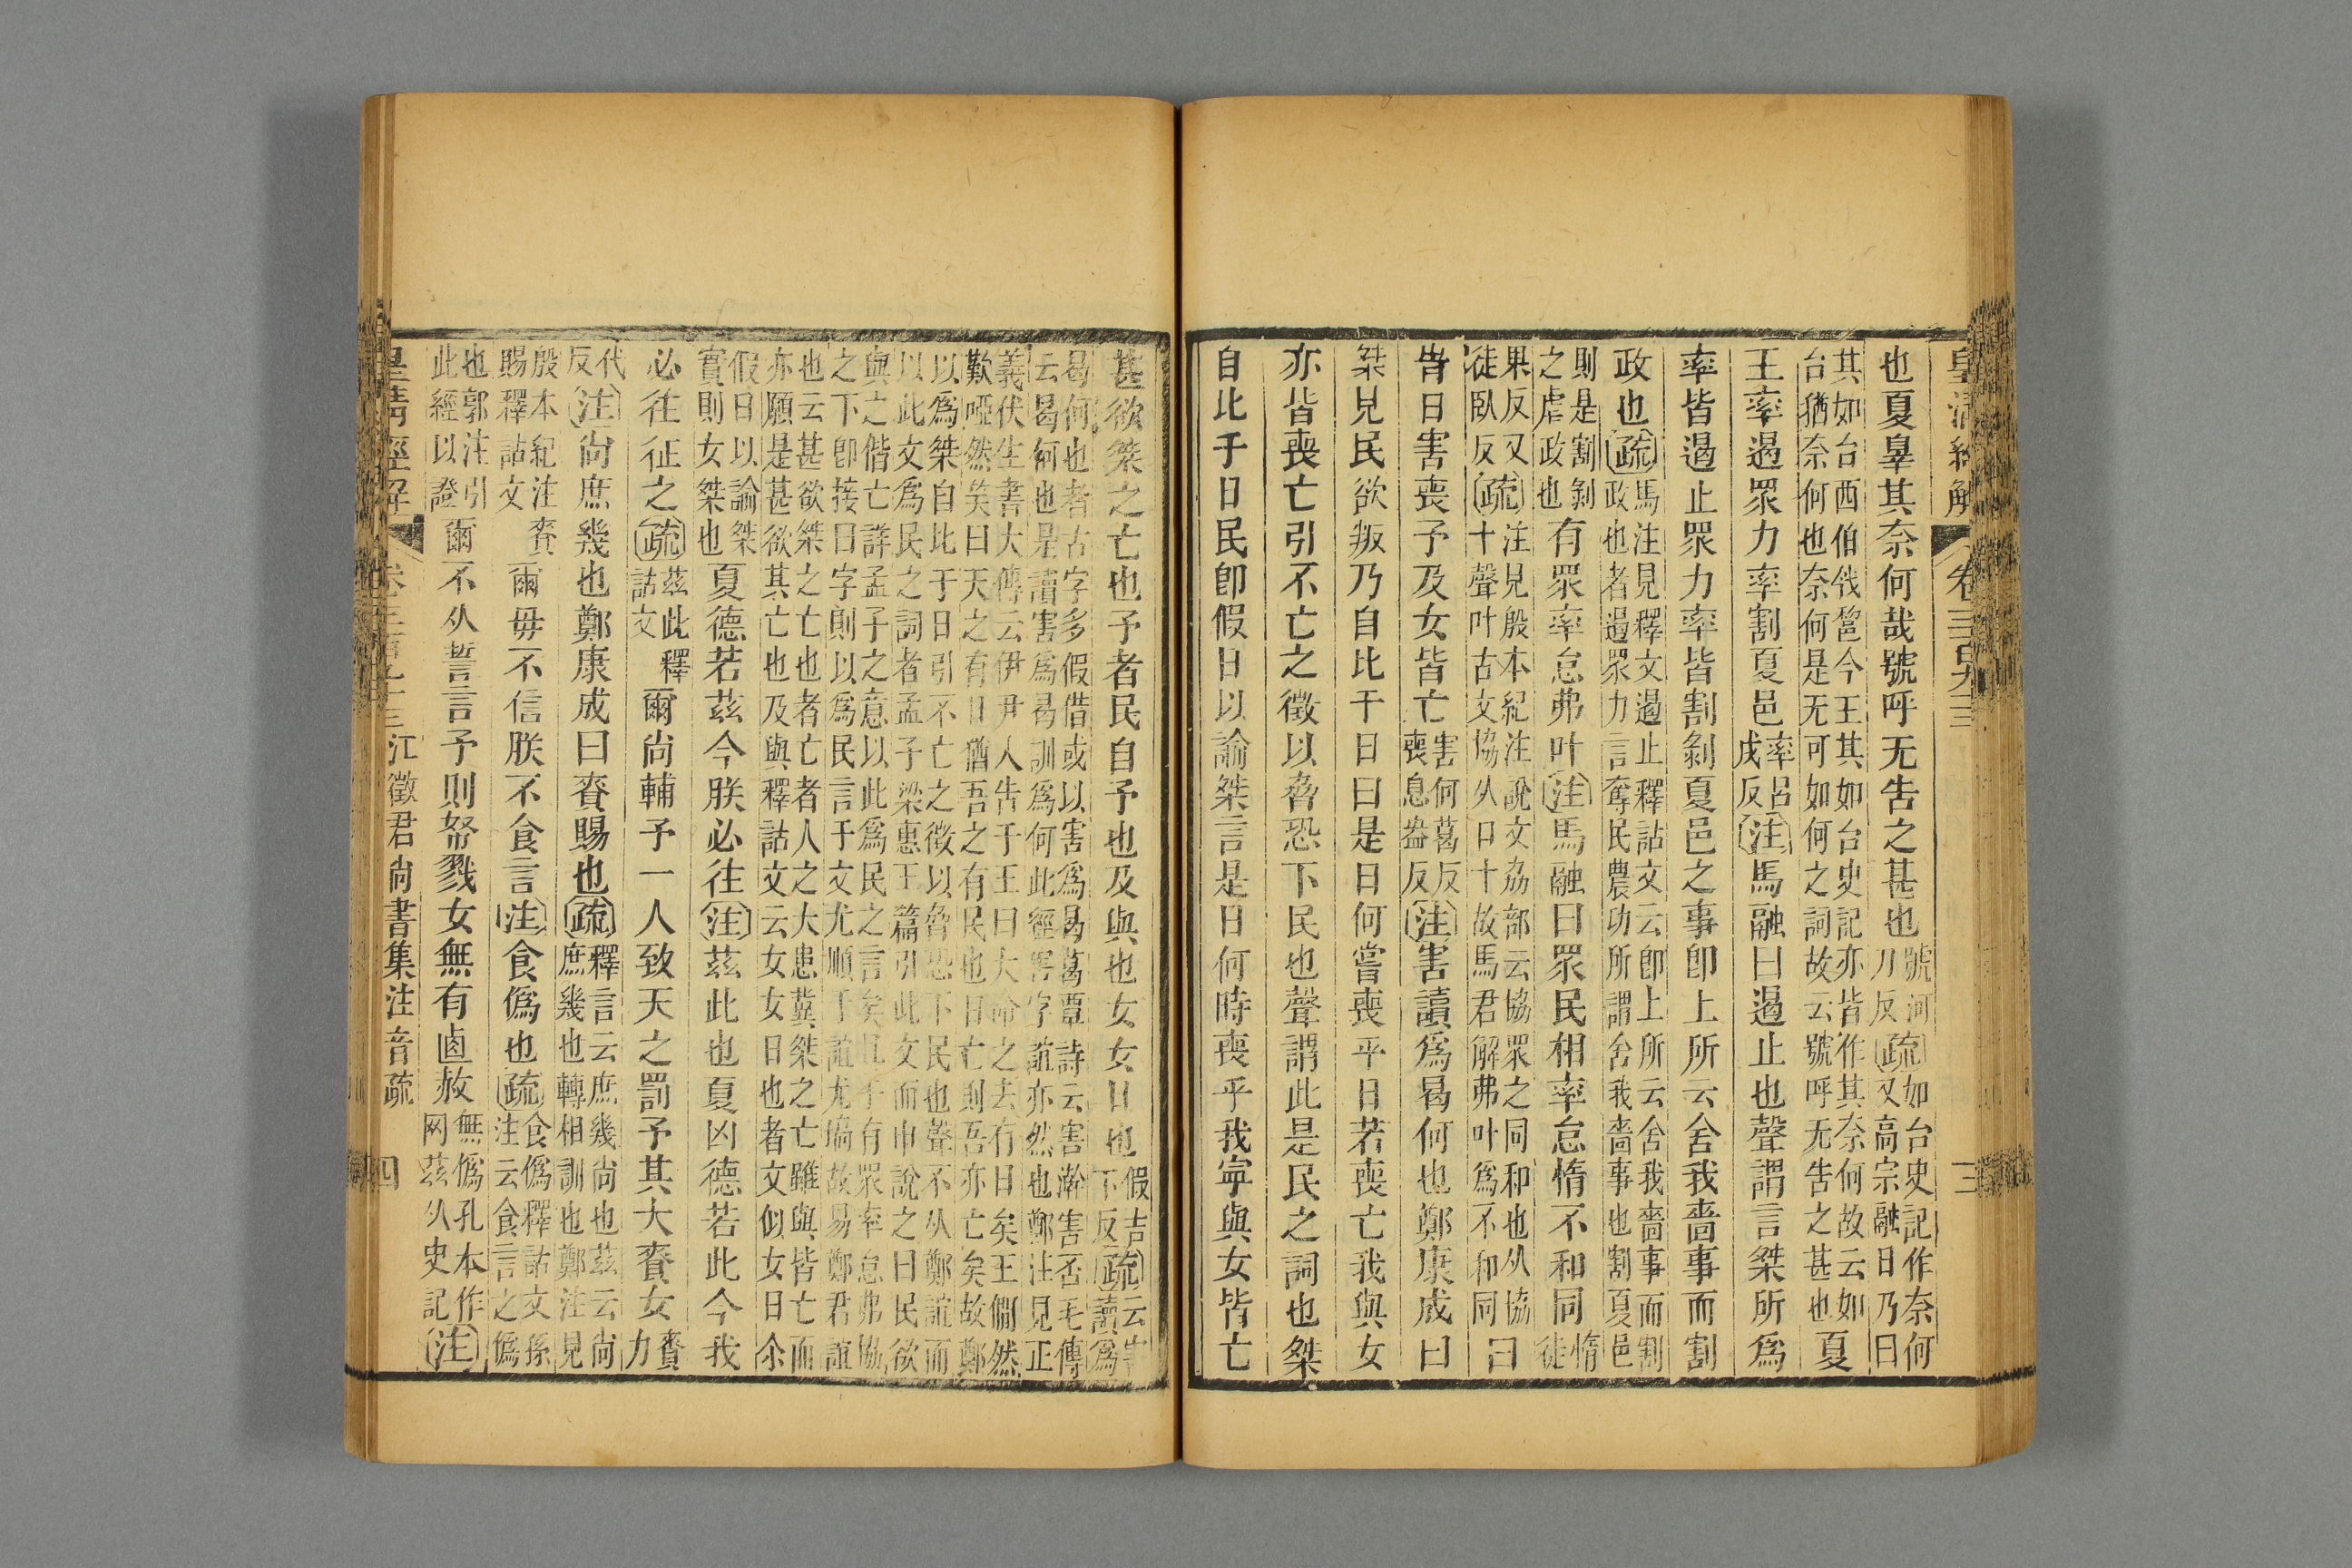 皇清經解 卷三百九三 三
也夏辠其奈何哉號呼无告之甚也號河刀反疏如台史記作奈何又高宗融日乃曰
其如台西伯戗𨛫今王其如台史記亦皆作其奈何故云如台猶奈何也奈何是无可如何之詞故云號呼无告之甚也夏
王率遏眾力率割夏邑率呂戌反注馬融曰遏止也聲謂言桀所爲
率皆遏止眾力率皆割剝夏邑之事卽上所云舍我嗇事而割
政也疏馬注見釋文遏止釋詁文云卽上所云舍我嗇事而割政也者遏眾力言奪民農功所謂舍我嗇事也割夏邑
則是割剝之虐政也有眾率怠弗叶注馬融曰眾民相率怠惰不和同惰徒
果反又徒臥反疏注見殷本紀注說文劦部云協眾之同和也从劦十聲叶古文協从日十故馬君解弗叶爲不和同曰
旹日害喪予及女皆亡害何葛反喪息盎反注害讀爲曷何也鄭康成曰
桀見民欲叛乃自比于日曰是日何嘗喪乎日若喪亡我與女
亦皆喪亡引不亡之徵以脅恐下民也聲謂此是民之詞也桀
自比于日民卽假日以諭桀言是日何時喪乎我寧與女皆亡
甚欲桀之亡也予者民自予也及與也女女日也假吉下反疏云害讀爲
曷何也者古字多假借或以害爲曷葛覃詩云害澣害否毛傳云曷何也是讀害爲曷訓爲何此經害字誼亦然也鄭注見正
義伏生書大傳云伊尹人告于王曰大命之去有日矣王僩然歎啞然笑曰天之有日猶吾之有民也日亡則吾亦亡矣故鄭
以爲桀自比于日引不亡之徵以脅恐下民也聲不从鄭誼而以此文爲民之詞者孟子梁惠王篇引此文而申說之曰民欲
與之偕亡詳孟子之意以此爲民之言矣且于有眾率怠弗協之下卽接曰字則以爲民言于文尤順于誼尤塙故易鄭君誼
也云甚欲桀之亡也者亡者人之大患冀桀之亡雖與皆亡而亦願是甚欲其亡也及與釋詁文云女女日也者文似女日余
假日以諭桀實則女桀也夏德若茲今朕必往注茲此也夏凶德若此今我
必往征之疏茲此釋詁文爾尚輔予一人致天之罰予其大賚女賚力
代反注尚庶幾也鄭康成曰賚賜也疏釋言云庶幾尚也茲云尚庶幾也轉相訓也鄭注見
殷本紀注賚賜釋詁文爾毋不信朕不食言注食僞也疏食僞釋詁文孫注云食言之僞
也郭注引此經以證爾不从誓言予則帑戮女無有卥赦無僞孔本作网茲从史記注
皇清經解 卷三百九十三 江徵君尚書集注音疏 四